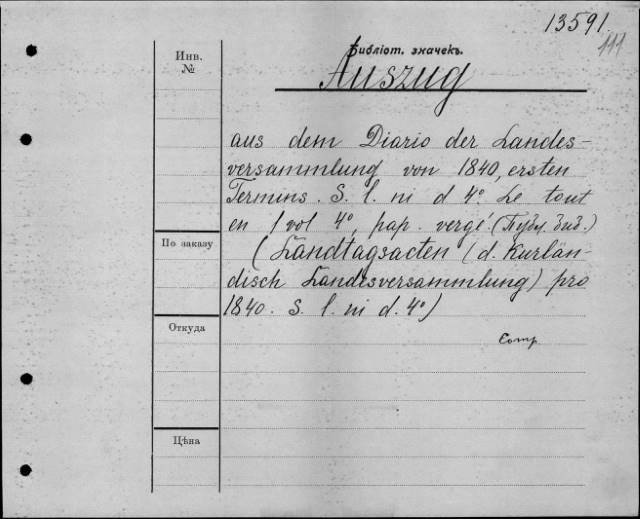 13591
111
Библiот. значекъ.
Инв.
№
Auszug
aus dem Diario der Landes-
versammlung von 1840, ersten
Termins. S. l. ni d 4º. Le tout
en 1 vol 4º, pap. vergé. (Публ. библ.)
По заказу
(Landtagsacten (d. Kurlän-
disch Landesversammlung) pro
1840. S. l. ni d. 4º)
Откуда
Comp
Цѣна